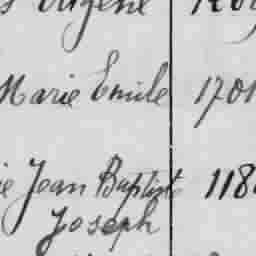 Eugène
Marie Emile 1701
Jean Baptiste 118
Joseph